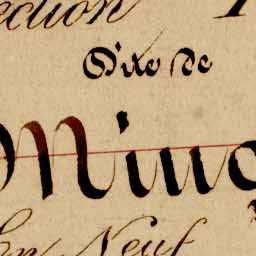 ection
Dixo de
Mino
En Neuf